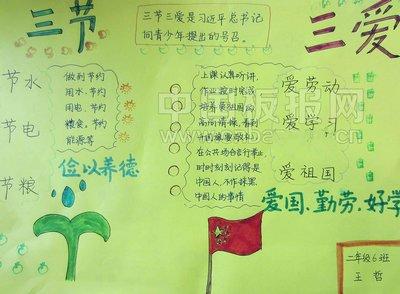 三节
三节三爱是习近平总书记
向青少年提出的号召。
三爱
节水
节电
节粮
做到节约
用水、节约
用电、节约
粮食、节约
能源等
俭以养德
上课认真听讲,
作业按时
培养爱祖国的
高尚情操,看到
国旗要敬礼,
在公共场合言行举止,
时时刻刻记得是
中国人,不作抹黑
中国人的事情
爱劳动
爱学习
爱祖国
爱国、勤劳、好学
二年级6班
王哲
中国
报网